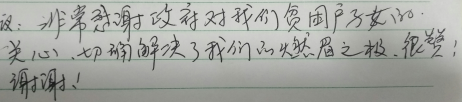 议：非常感谢政府对我们贫困户子女的
关心、切确解决了我们的燃眉之极、很赞！
谢谢！